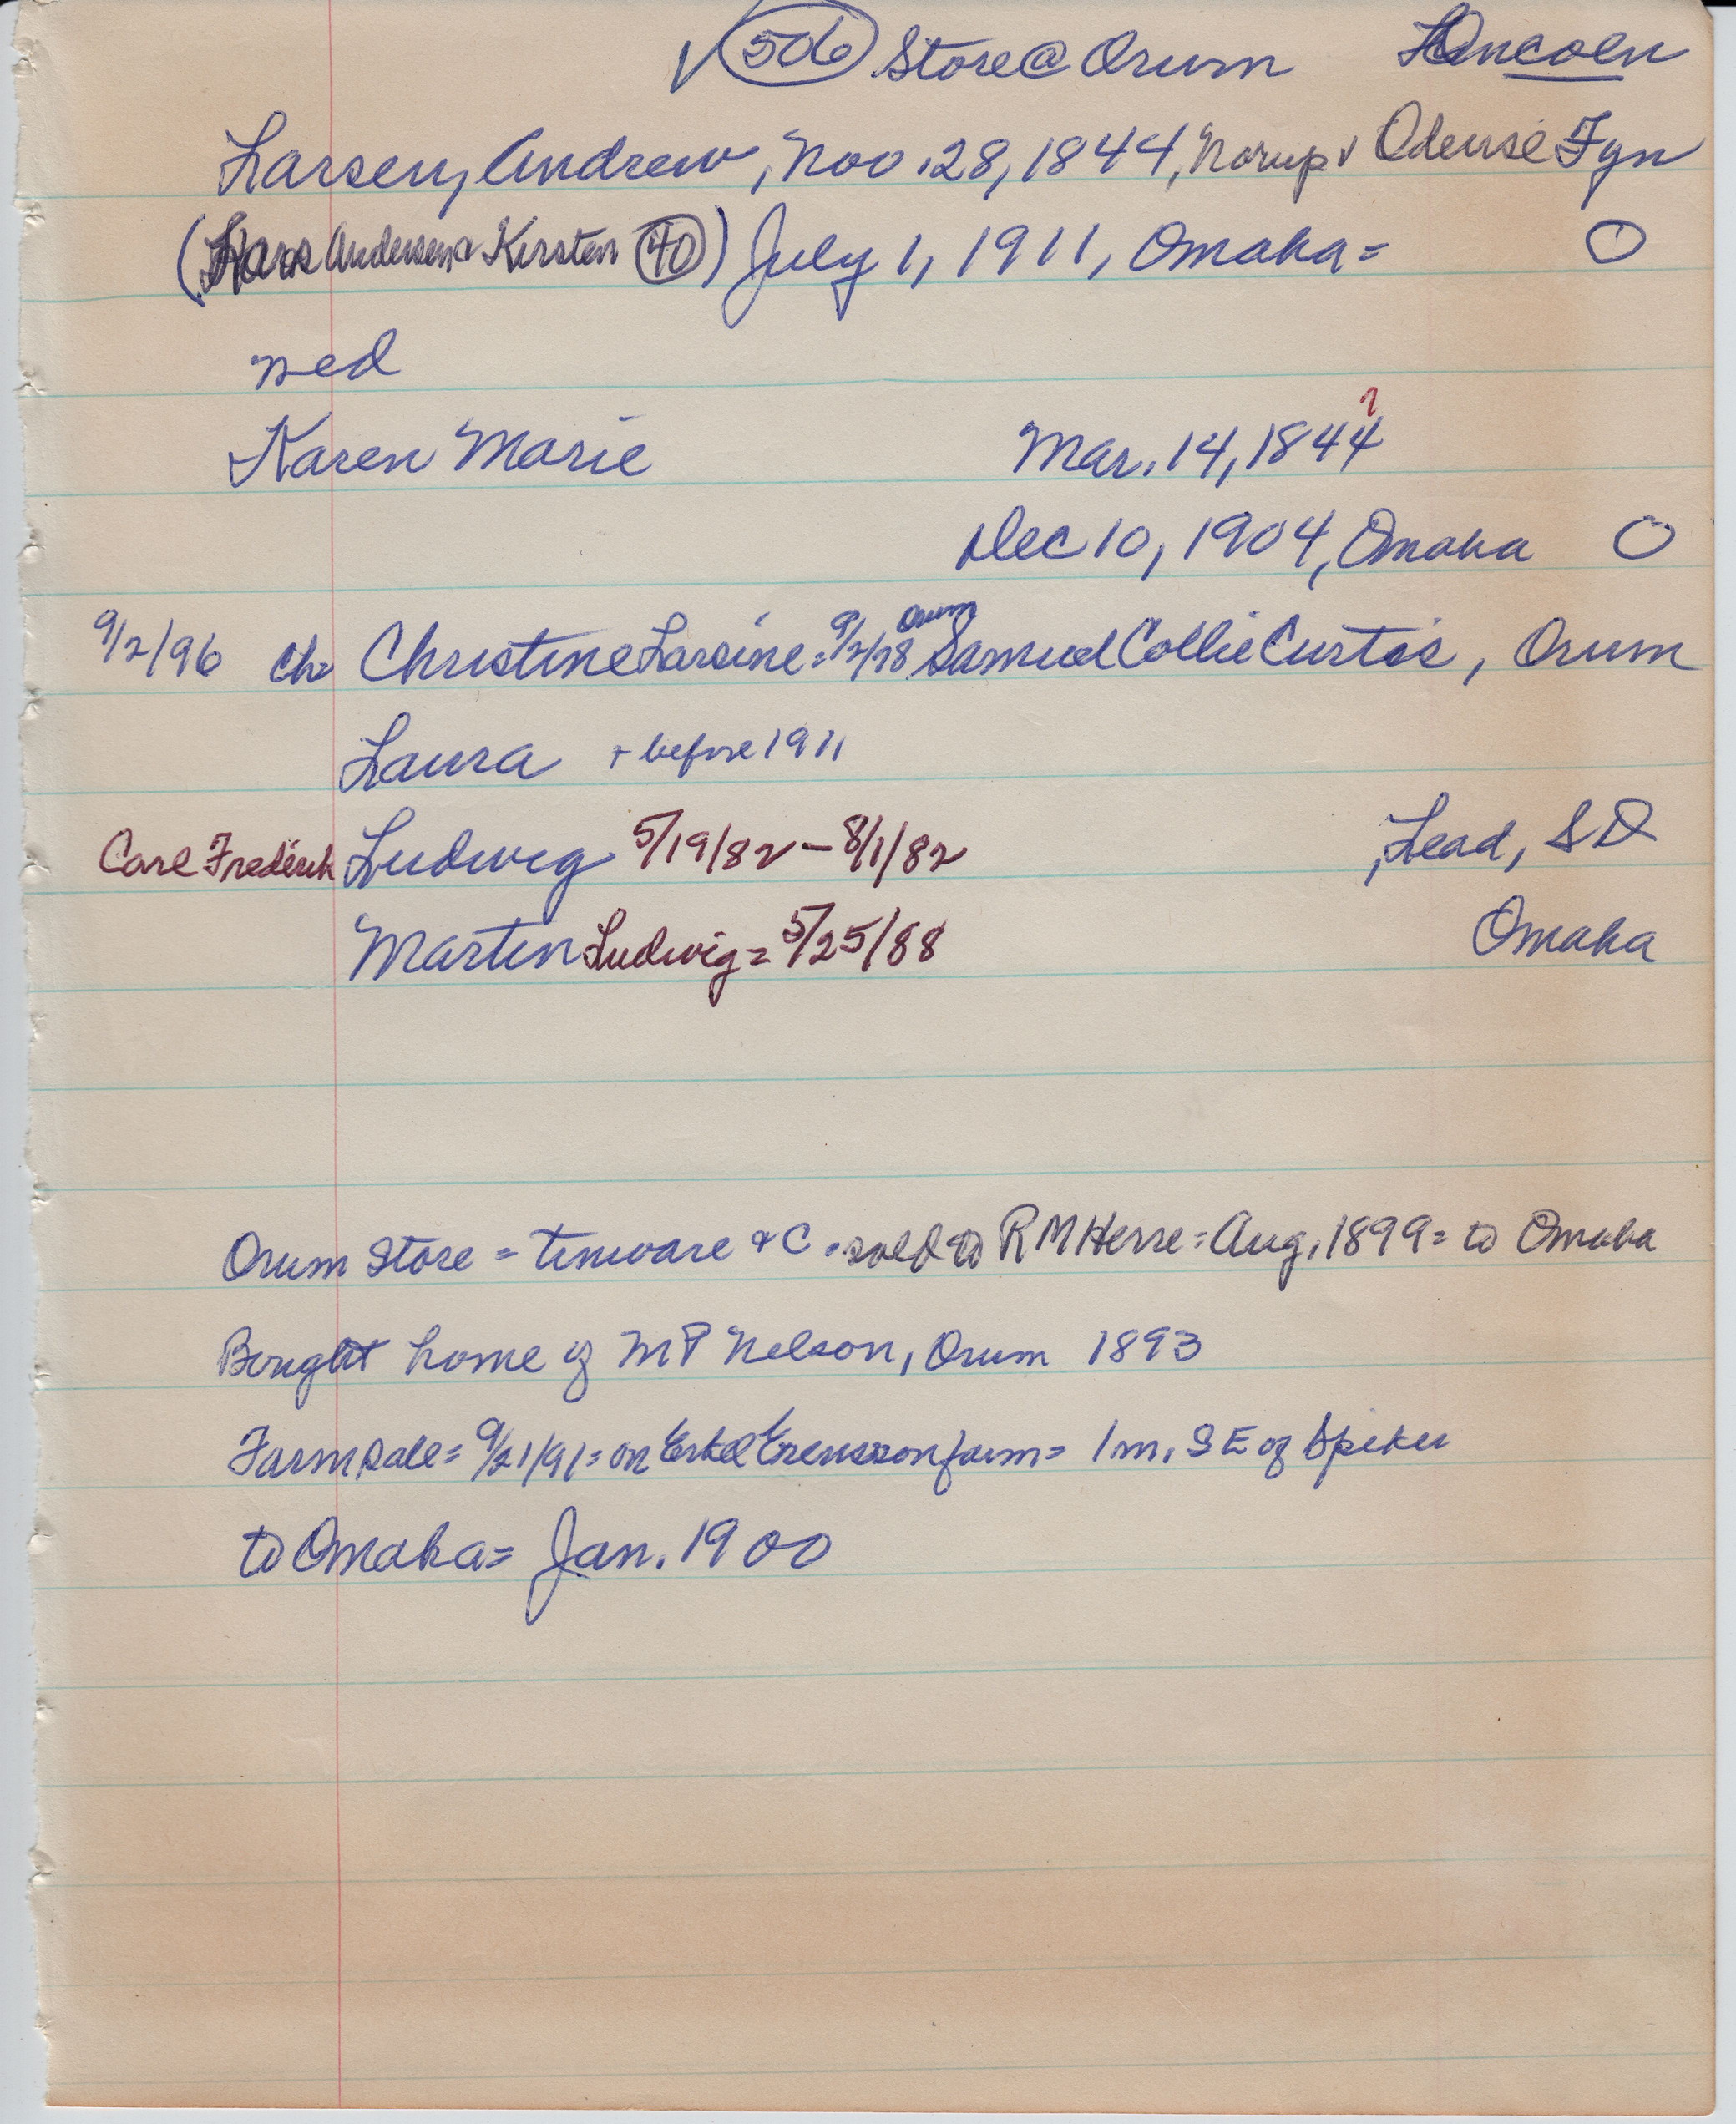 √ 506 Store @ Orum Lincoln
Larsen, Andrew, Nov. 28, 1844, Norup v Odense Fyn
(Lars Andersen & Kirsten 40) July 1, 1911, Omaha = O
med
Karen Marie Mar. 14, 1844 ?
Dec 10, 1904, Omaha O
9/2/96 Ch= Christine Larsine = 9/2/78 Orum Samuel Collie Curtis, Orum
Laura + before 1911
Carl Frederik Ludwig 5/19/82 – 8/1/82 , Lead, SD
Martin Ludwig = 5/25/88 Omaha
Orum Store = tinware & C. sold to R M Herre = Aug, 1899 = to Omaha
Bought home of MP Nelson, Orum 1893
Farm Sale = 9/21/91 = on farm = 1 m. SE of Spiker
to Omaha = Jan. 1900